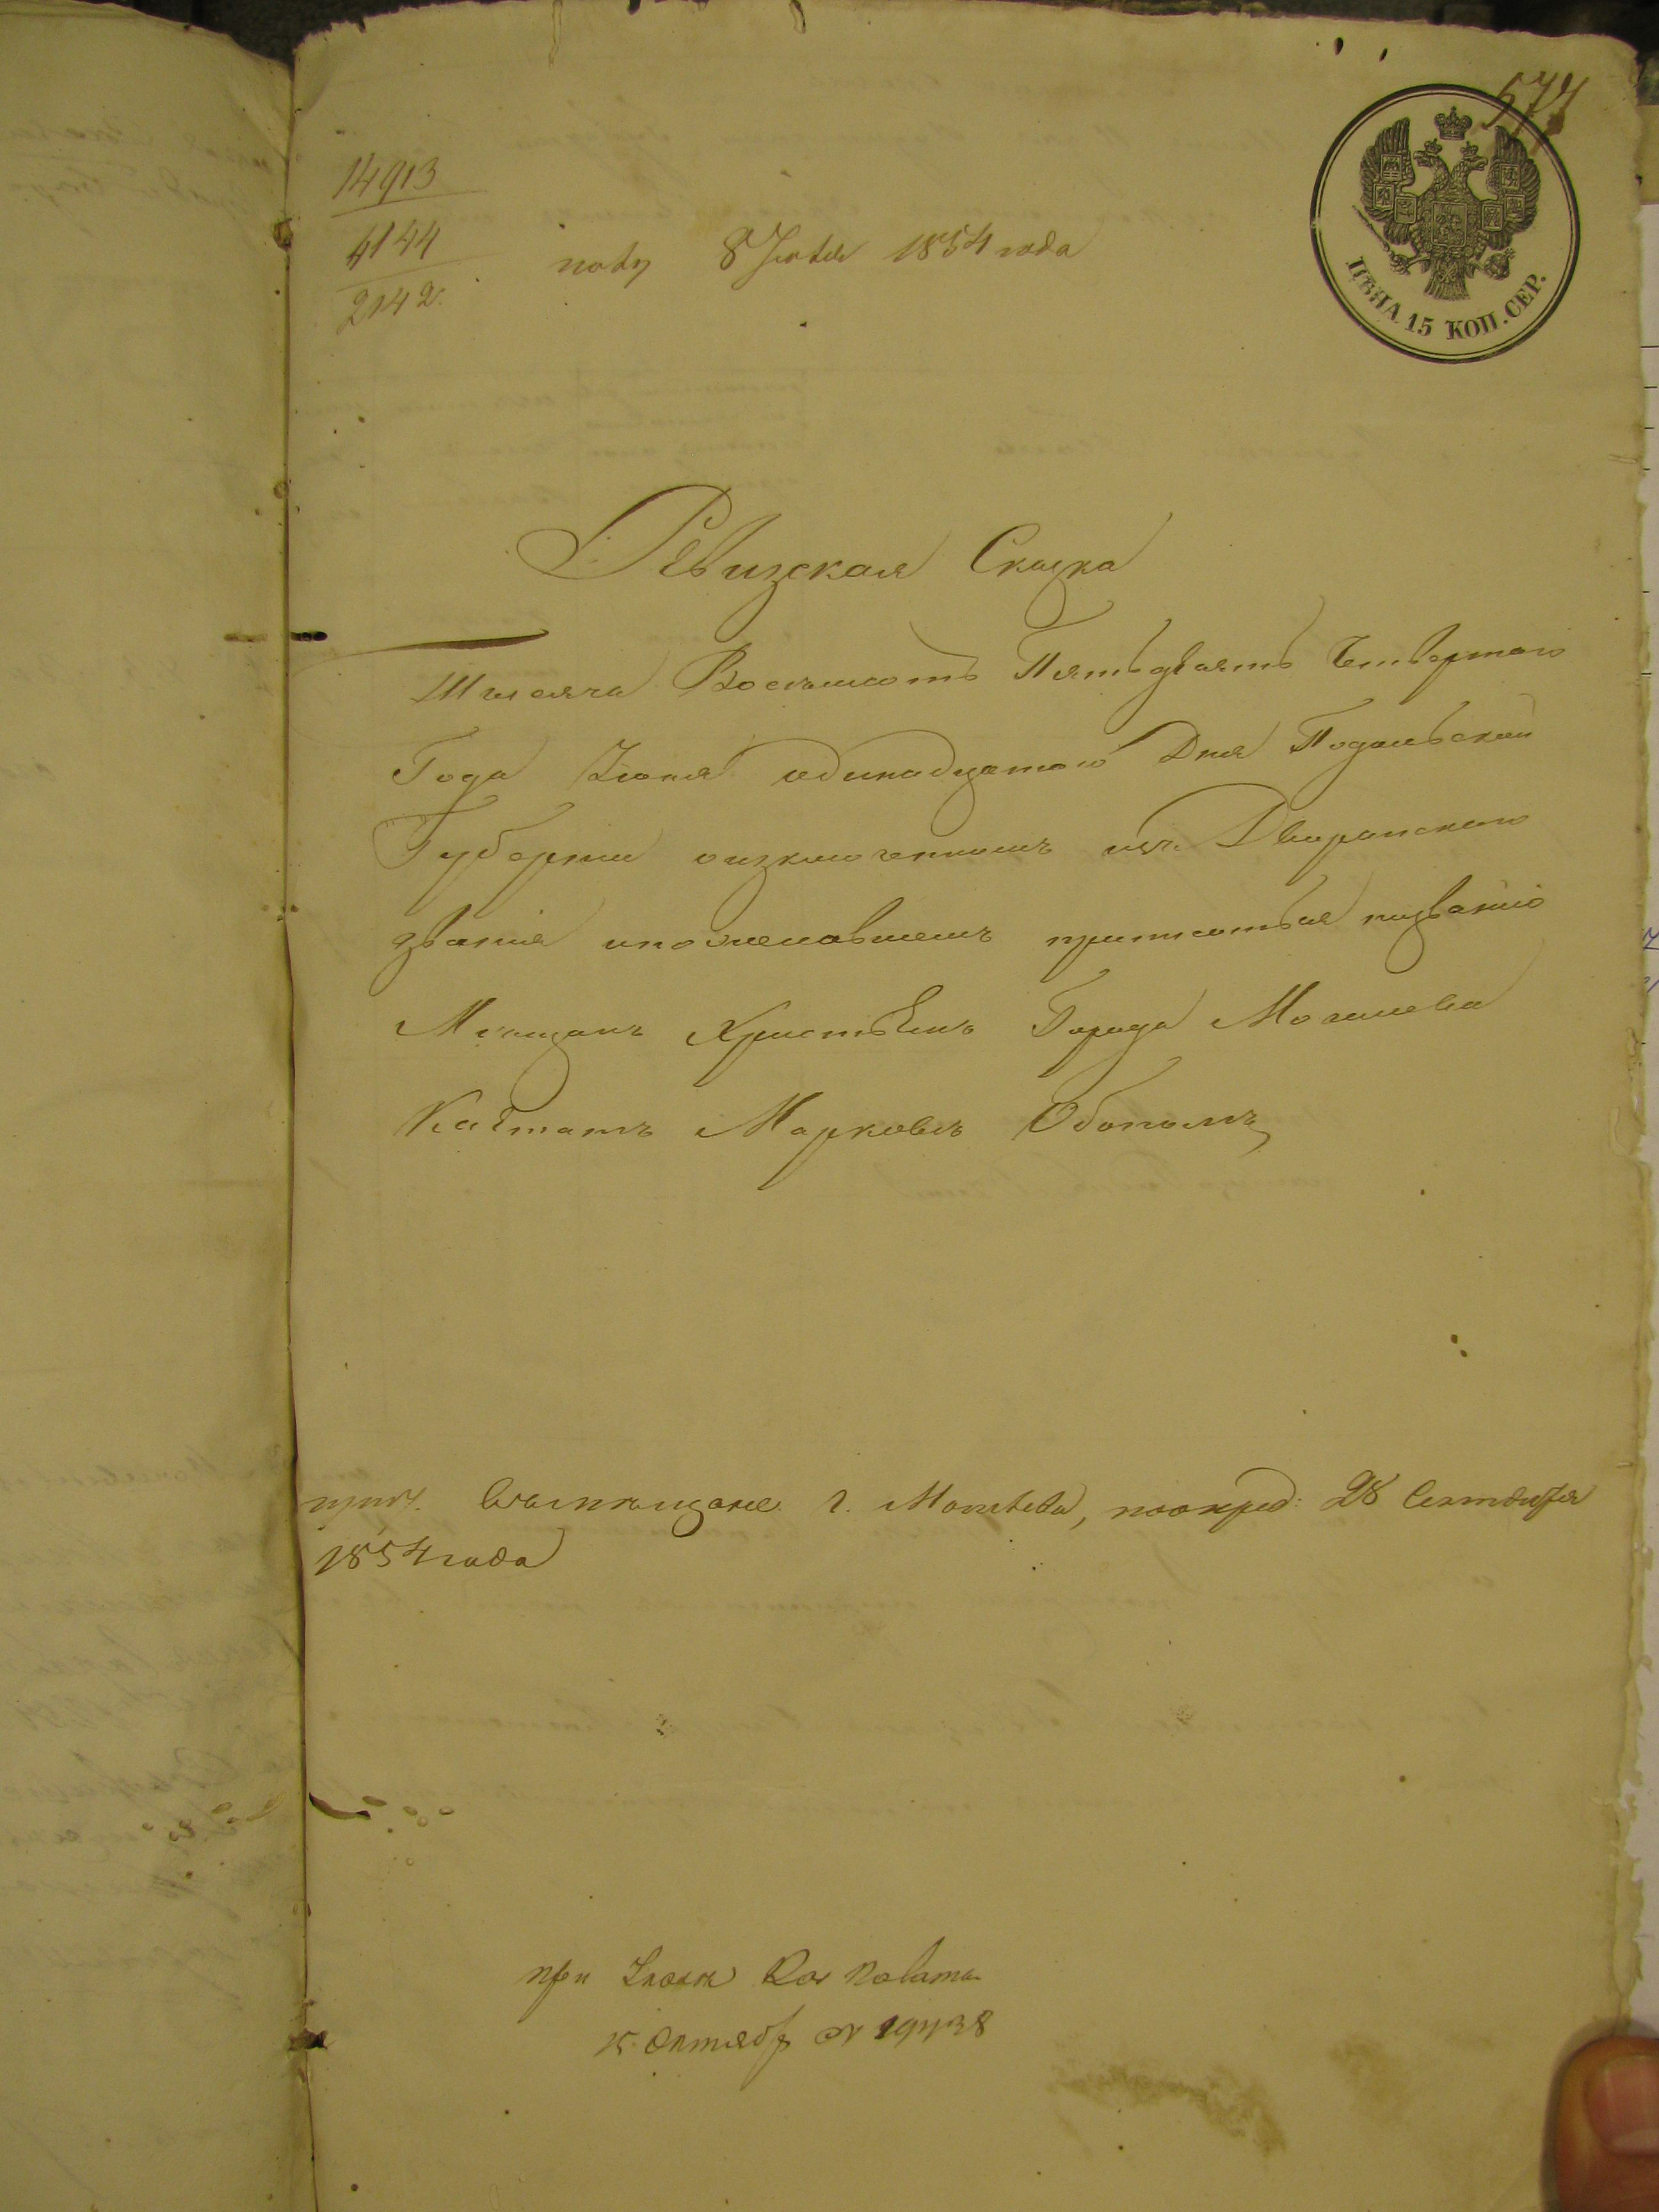 577
14913
4144
2142
полу 8 Іюля 1854 года
ЦѢНА 15 КОП. СЕР.
Ревизская Сказка
Тысяча Восемьсотъ Пятьдзятъ Четвертого
Года Іюня одинадцатого Дня Подольской
Губерніи оизключенномъ изъ Дворянского
званія ипожелавшемъ приписатьця кизванію
Мещанъ Христьянъ Города Могилева
Каетанъ Марковъ
прич. въмѣщане г. Могилева, поокред: 28 Сентября
1854 года
при
Октябр №